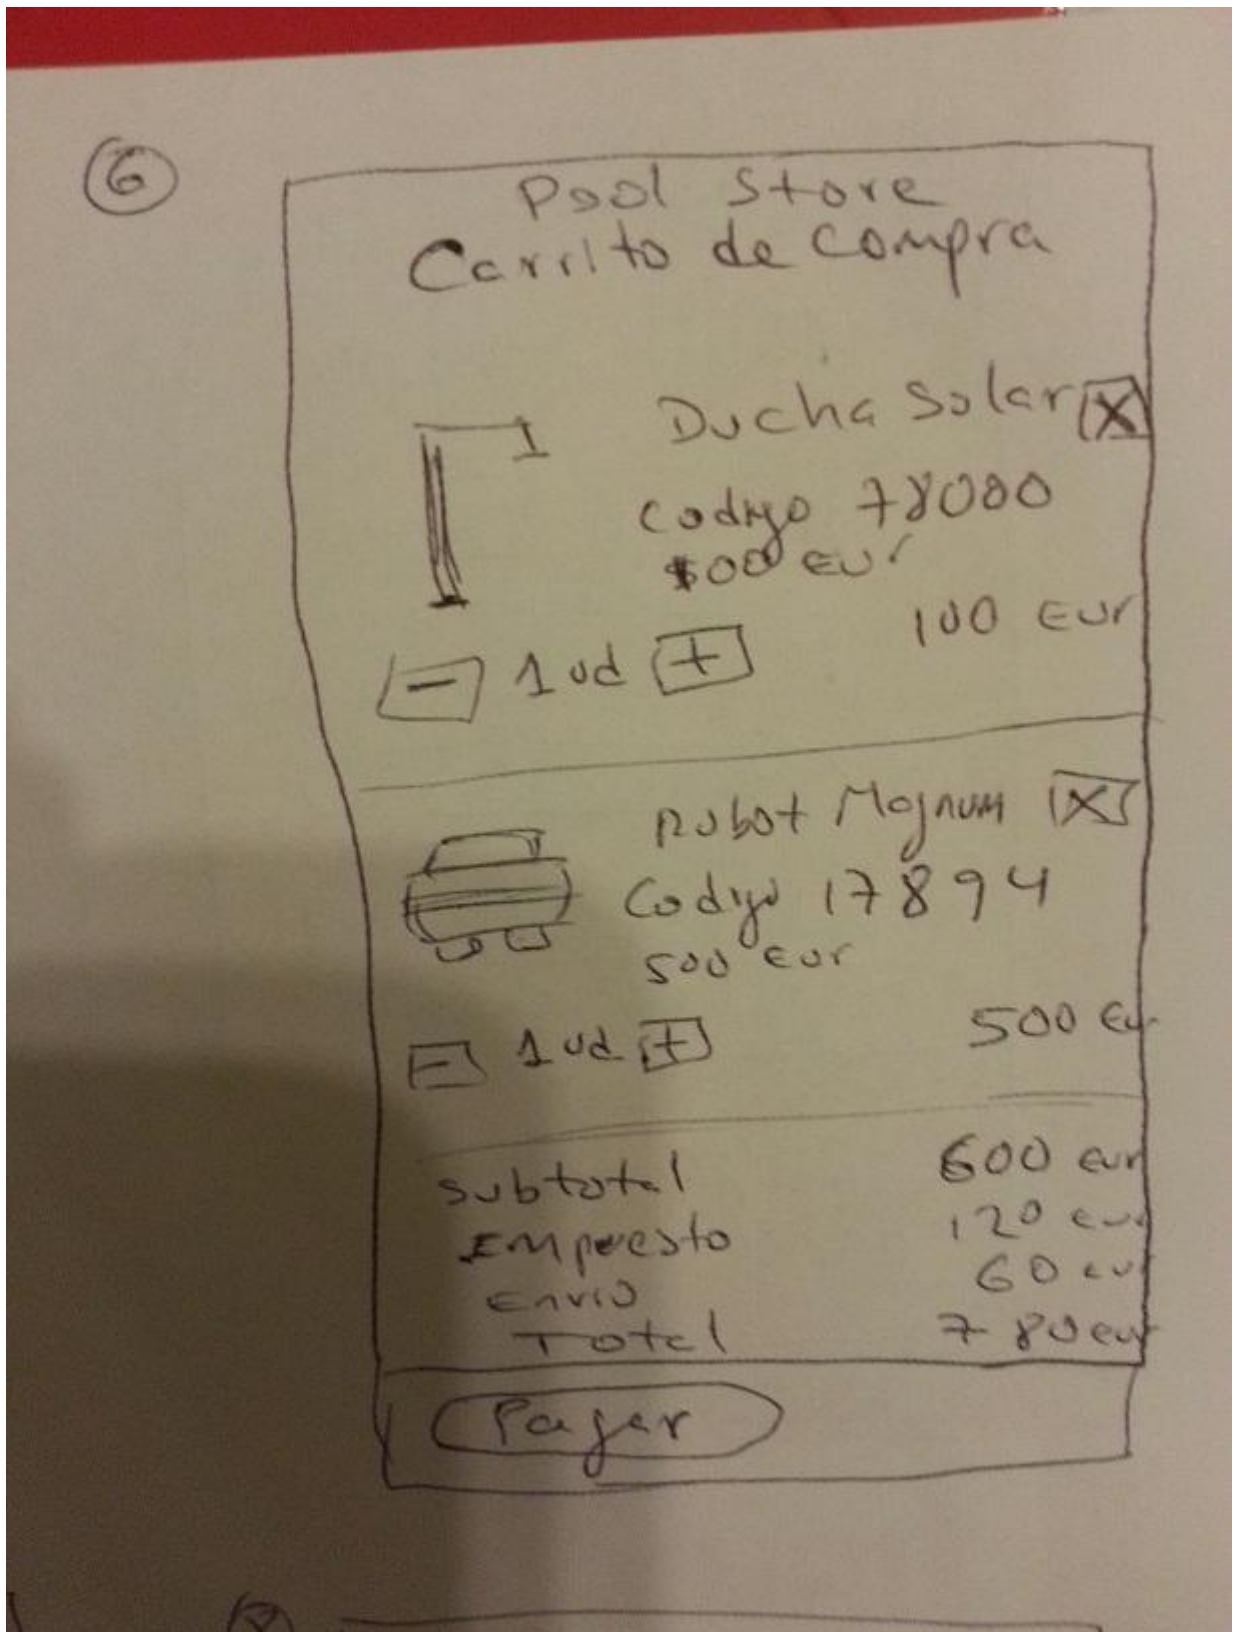 6
Pool Store
Carrito de compra
Ducha Solar X
Codigo 78000
100 eur
- 1 ud + 100 Eur
Robot Magnum X
Codigo 17894
500 eur
- 1 ud + 500 Eu
Subtotal 600 eur
Empuesto 120 eur
Envio 60 eur
Total 780 eur
Pagar